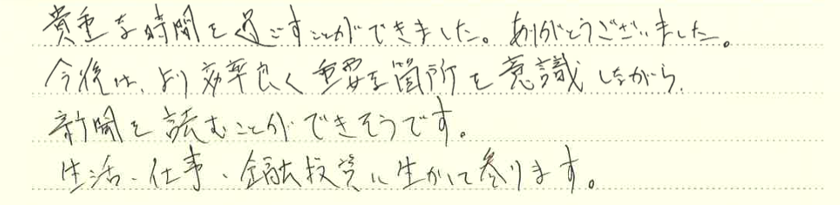 貴重な時間を過ごすことができました。ありがとうございました。
今後は、より効率良く重要な箇所を意識しながら、
新聞を読むことができそうです。
生活、仕事、金融投資に生かして参ります。